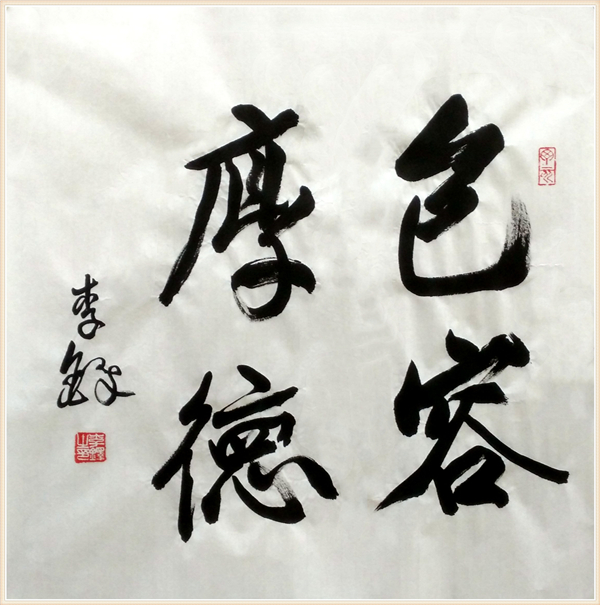 包容
厚德
李鐸